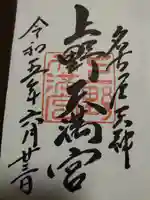 名古屋天神
上野天満宮
令和五年六月廿三日